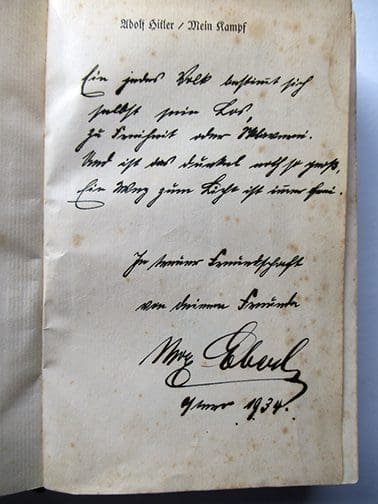 Adolf Hitler / Mein Kampf
Ein jedes Volk bestimmt sich
selbst sein Los,
zu Freiheit oder Sklaverei.
Und ist das dunkel noch so groß,
Ein Weg zum Licht ist im̅er frei.
In treuer Freundschaft
von deinem Freunde
Max
1934.